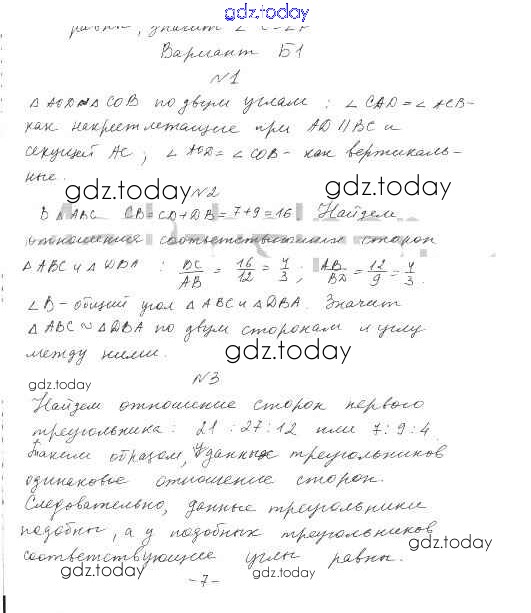 gdz.today
равны, значит
Вариант Б1
№1
△ AOD ∾ △ COB по двум углам : ∠ CAD = ∠ ACB -
как накрест лежащие при AD || BC и
секущей AC ; ∠ AOD = ∠ COB - как вертикаль-
ные.
gdz.today
gdz.today
№2
В △ ABC CB = CD + DB = 7 + 9 = 16 Найдем
отношения соответственных сторон
△ ABC и △ DBA : BC/AB = 16/12 = 4/3 ; AB/BD = 12/9 = 4/3.
∠ B - общий угол △ ABC и △ DBA. Значит
△ ABC ∾ △ DBA по двум сторонам и углу
между ними.
gdz.today
gdz.today
№3
Найдем отношение сторон первого
треугольника : 21 : 27 : 12 или 7 : 9 : 4.
Таким образом, у данных треугольников
одинаковое отношение сторон.
Следовательно, данные треугольники
подобны, а у подобных треугольников
соответствующие углы равны.
gdz.today
gdz.today
- 7 -